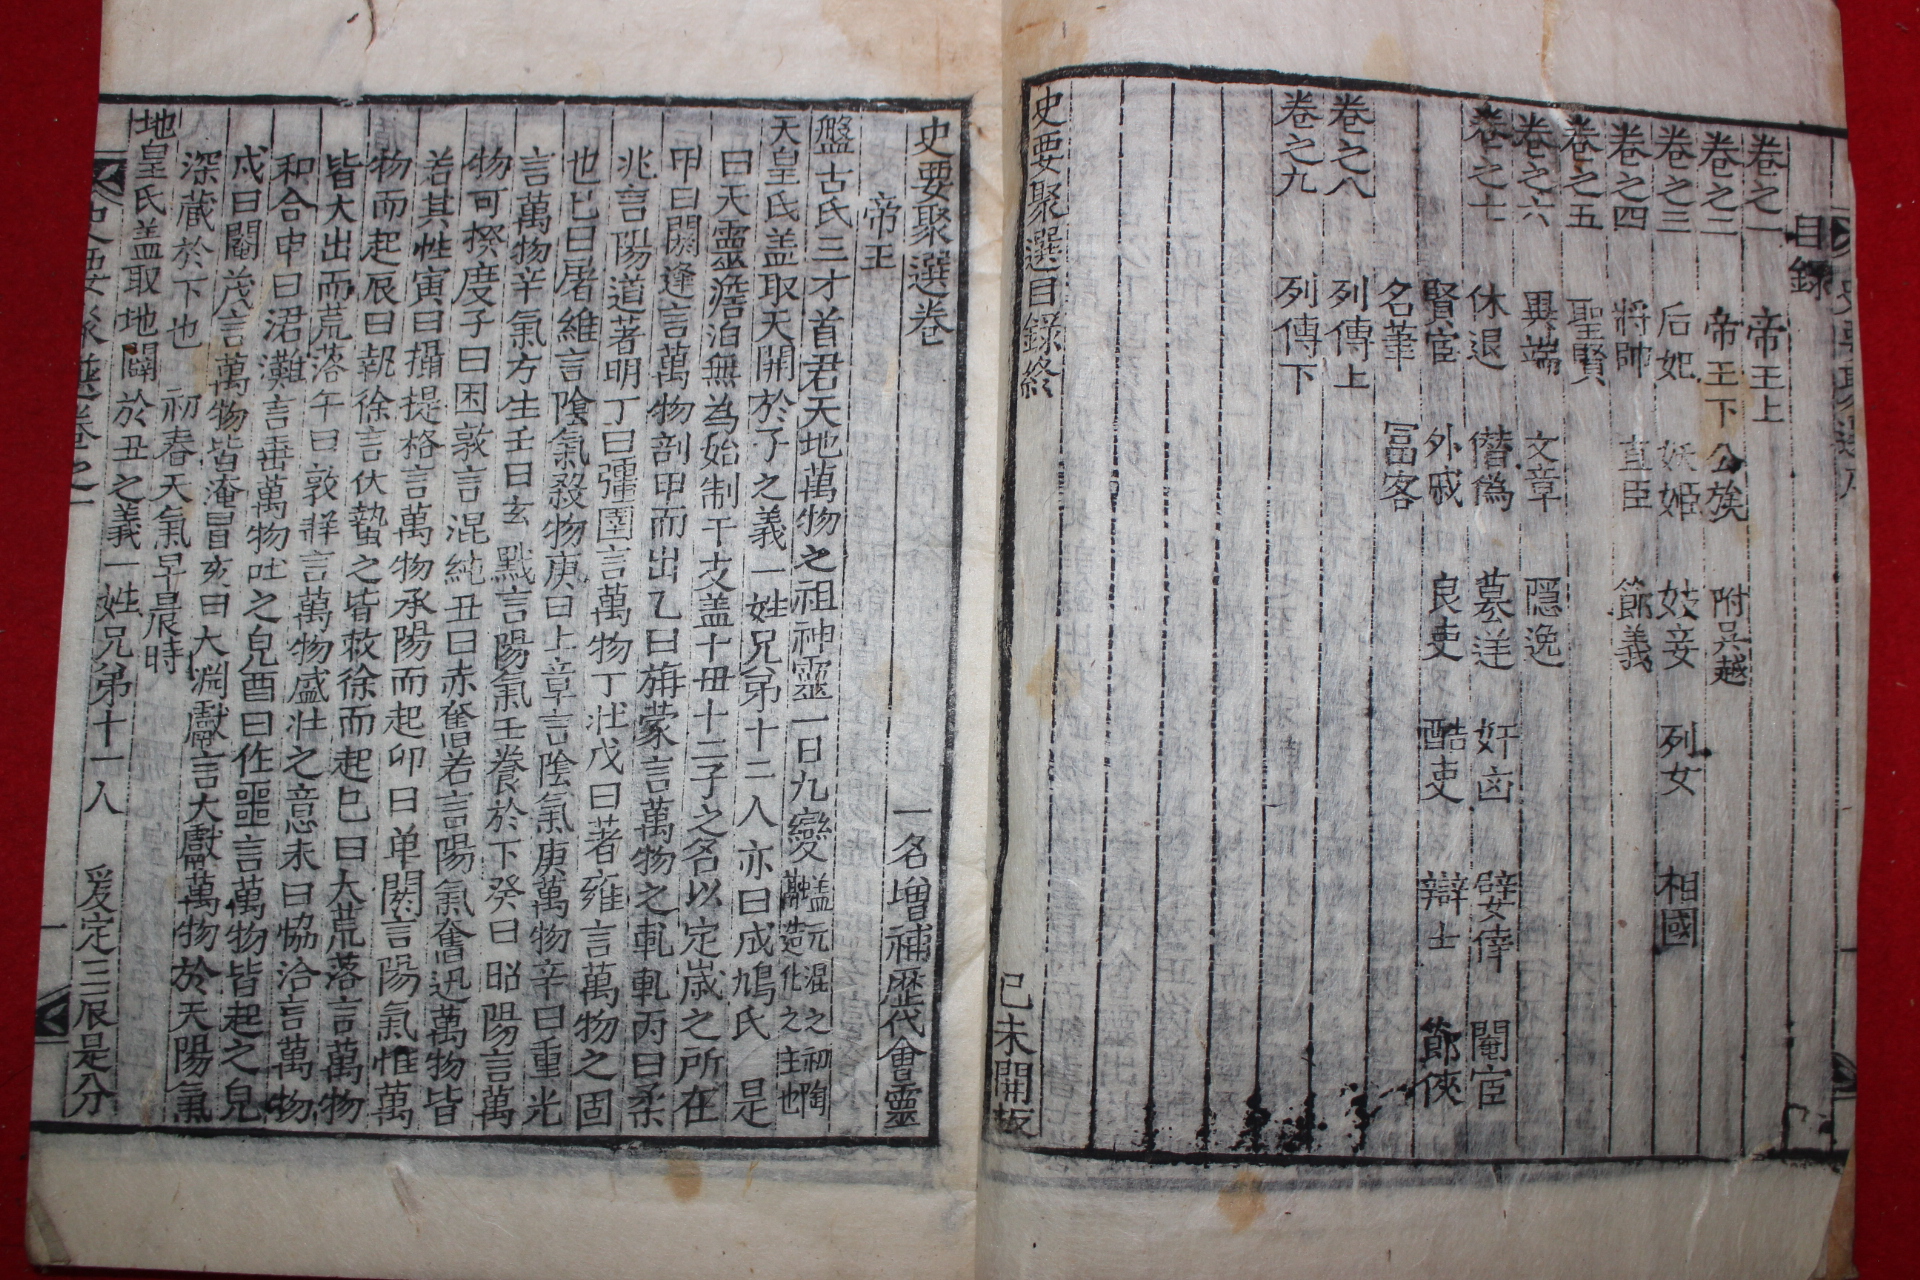 目錄
卷之一 帝王上
卷之二 帝王下 公族 附吳越
卷之三 后妃 妖姬 妓妾 列女 相國
卷之四 將帥 直臣 節義
卷之五 聖賢
卷之六 異端 文章 隠逸
卷之七 休退 僭僞 篡逆 奸凶 嬖倖 閹宦
賢宦 外戚 良吏 酷吏 辯士 節俠
名筆 冨客
卷之八 列傳上
卷之九 列傳下
史要聚選目錄終 己未開板
史要聚選卷 一名增補歷代會靈
帝王
盤古氏三才首君天地萬物之祖神靈一日九變 盖元混之初陶
融造化之主也
天皇氏盖取天開於子之義一姓兄弟十二人亦曰成鳩氏 是
曰天靈澹泊無為始制干支盖十毌十二子之名以定歲之所在
甲曰閼逢言萬物剖甲而出乙曰旃蒙言萬物之軋軋丙曰柔
兆言陽道著明丁曰彊圉言萬物丁壯戊曰著雍言萬物之固
也己曰屠維言陰氣殺物庚曰上章言陰氣庚萬物辛曰重光
言萬物辛氣方生壬曰玄黓言陽氣壬養於下癸曰昭陽言萬
物可揆度子曰困敦言混純丑曰赤奮若言陽氣奮迅萬物皆
若其性寅曰攝提格言萬物承陽而起卯曰单閼言陽氣惟萬
物而起辰曰執徐言伏蟄之皆敕徐而起巳曰大荒落言萬物
皆大出而荒落午曰敦牂言萬物盛壯之意未曰恊洽言萬物
和合申曰涒灘言垂萬物吐之皃酉曰作噩言萬物皆起之皃
戍曰閹茂言萬物皆淹冒亥曰大淵獻言大獻萬物於天陽氣
深蔵於下也 初春天氣早晨時
地皇氏盖取地闢於丑之義一姓兄弟十一人 爰定三辰是分